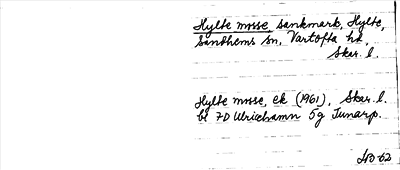 Hylte mosse, sankmark, Hylte,
Sandhems sn, Vartofta hd,
Skar. l.
Hylte mosse, ek (1961), Skar. l.
bl 7D Ulricehamn 5g Tunarp.